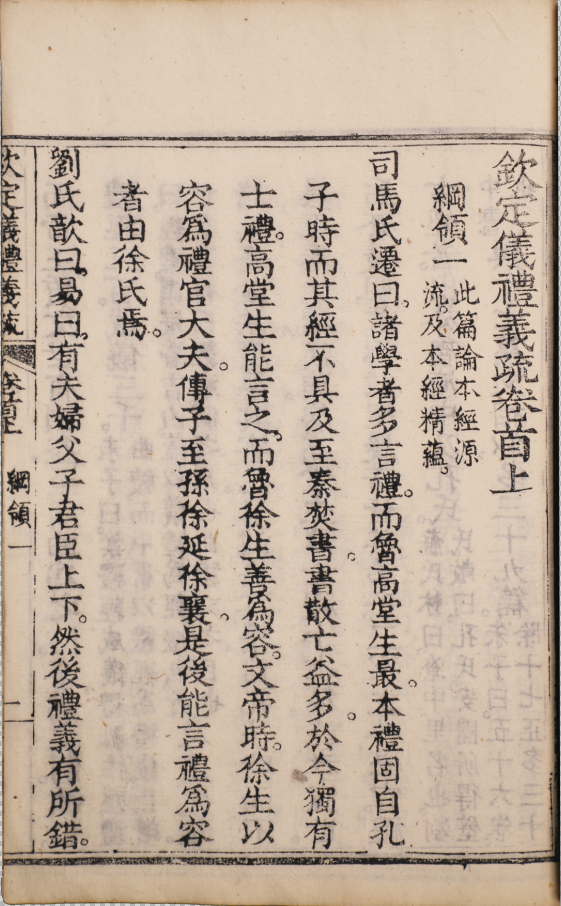 欽定儀禮義疏卷首上
綱領一 此篇論本經源
流。及本經精蘊。
司馬氏遷曰。諸學者多言禮。而魯高堂生最。本禮固自孔
子時而其經不具及至秦焚書。書散亡益多。於今獨有
士禮。高堂生能言之。而魯徐生善為容。文帝時。徐生以
容為禮官大夫。傳子至孫徐延徐襄。是後能言禮為容
者由徐氏焉。
劉氏歆曰。易曰。有夫婦父子君臣上下。然後禮義有所錯。
欽定儀禮義疏 卷首上 綱領一 一